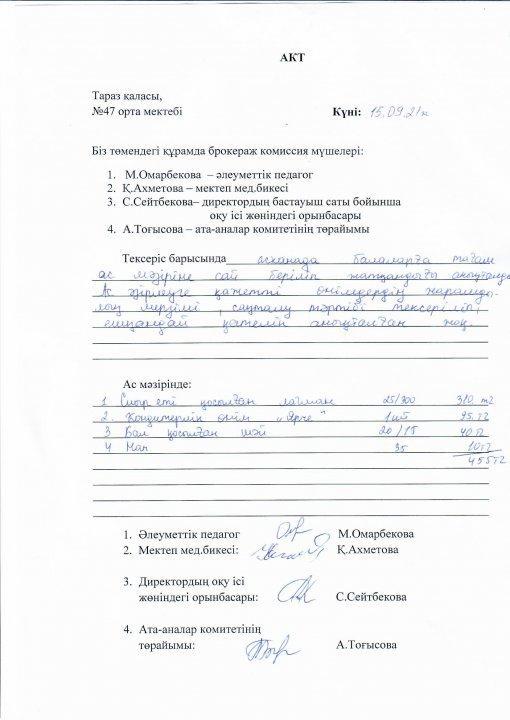 АКТ
Тараз қаласы,
№47 орта мектебі Күні: 15.09.21ж
Біз төмендегі құрамда брокераж комиссия мүшелері:
1. М.Омарбекова – әлеуметтік педагог
2. Қ.Ахметова – мектеп мед.бикесі
3. С.Сейтбекова– директордың бастауыш саты бойынша
оқу ісі жөніндегі орынбасары
4. А.Тоғысова – ата-аналар комитетінің төрайымы
Тексеріс барысында асханада балаларға тағам
ас мәзіріне сай беріліп жатқандығы анықталды.
Ас әзірлеуге қажетті өнімдердің жарамды-
лық мерзімі, сақталу тәртібі тексеріліп,
ешқандай қателік анықталған жоқ.
Ас мәзірінде:
1 Сиыр еті қосылған лағман 25/300 310 тг
2. Кондитерлік өнім „Ярче" 1шт 95 тг
3 Бал қосылған шәй 20/15 40 тг
4 Нан 35 10тг
455тг
1. Әлеуметтік педагог М.Омарбекова
2. Мектеп мед.бикесі: Қ.Ахметова
3. Директордың оқу ісі
жөніндегі орынбасары: С.Сейтбекова
4. Ата-аналар комитетінің
төрайымы: А.Тоғысова